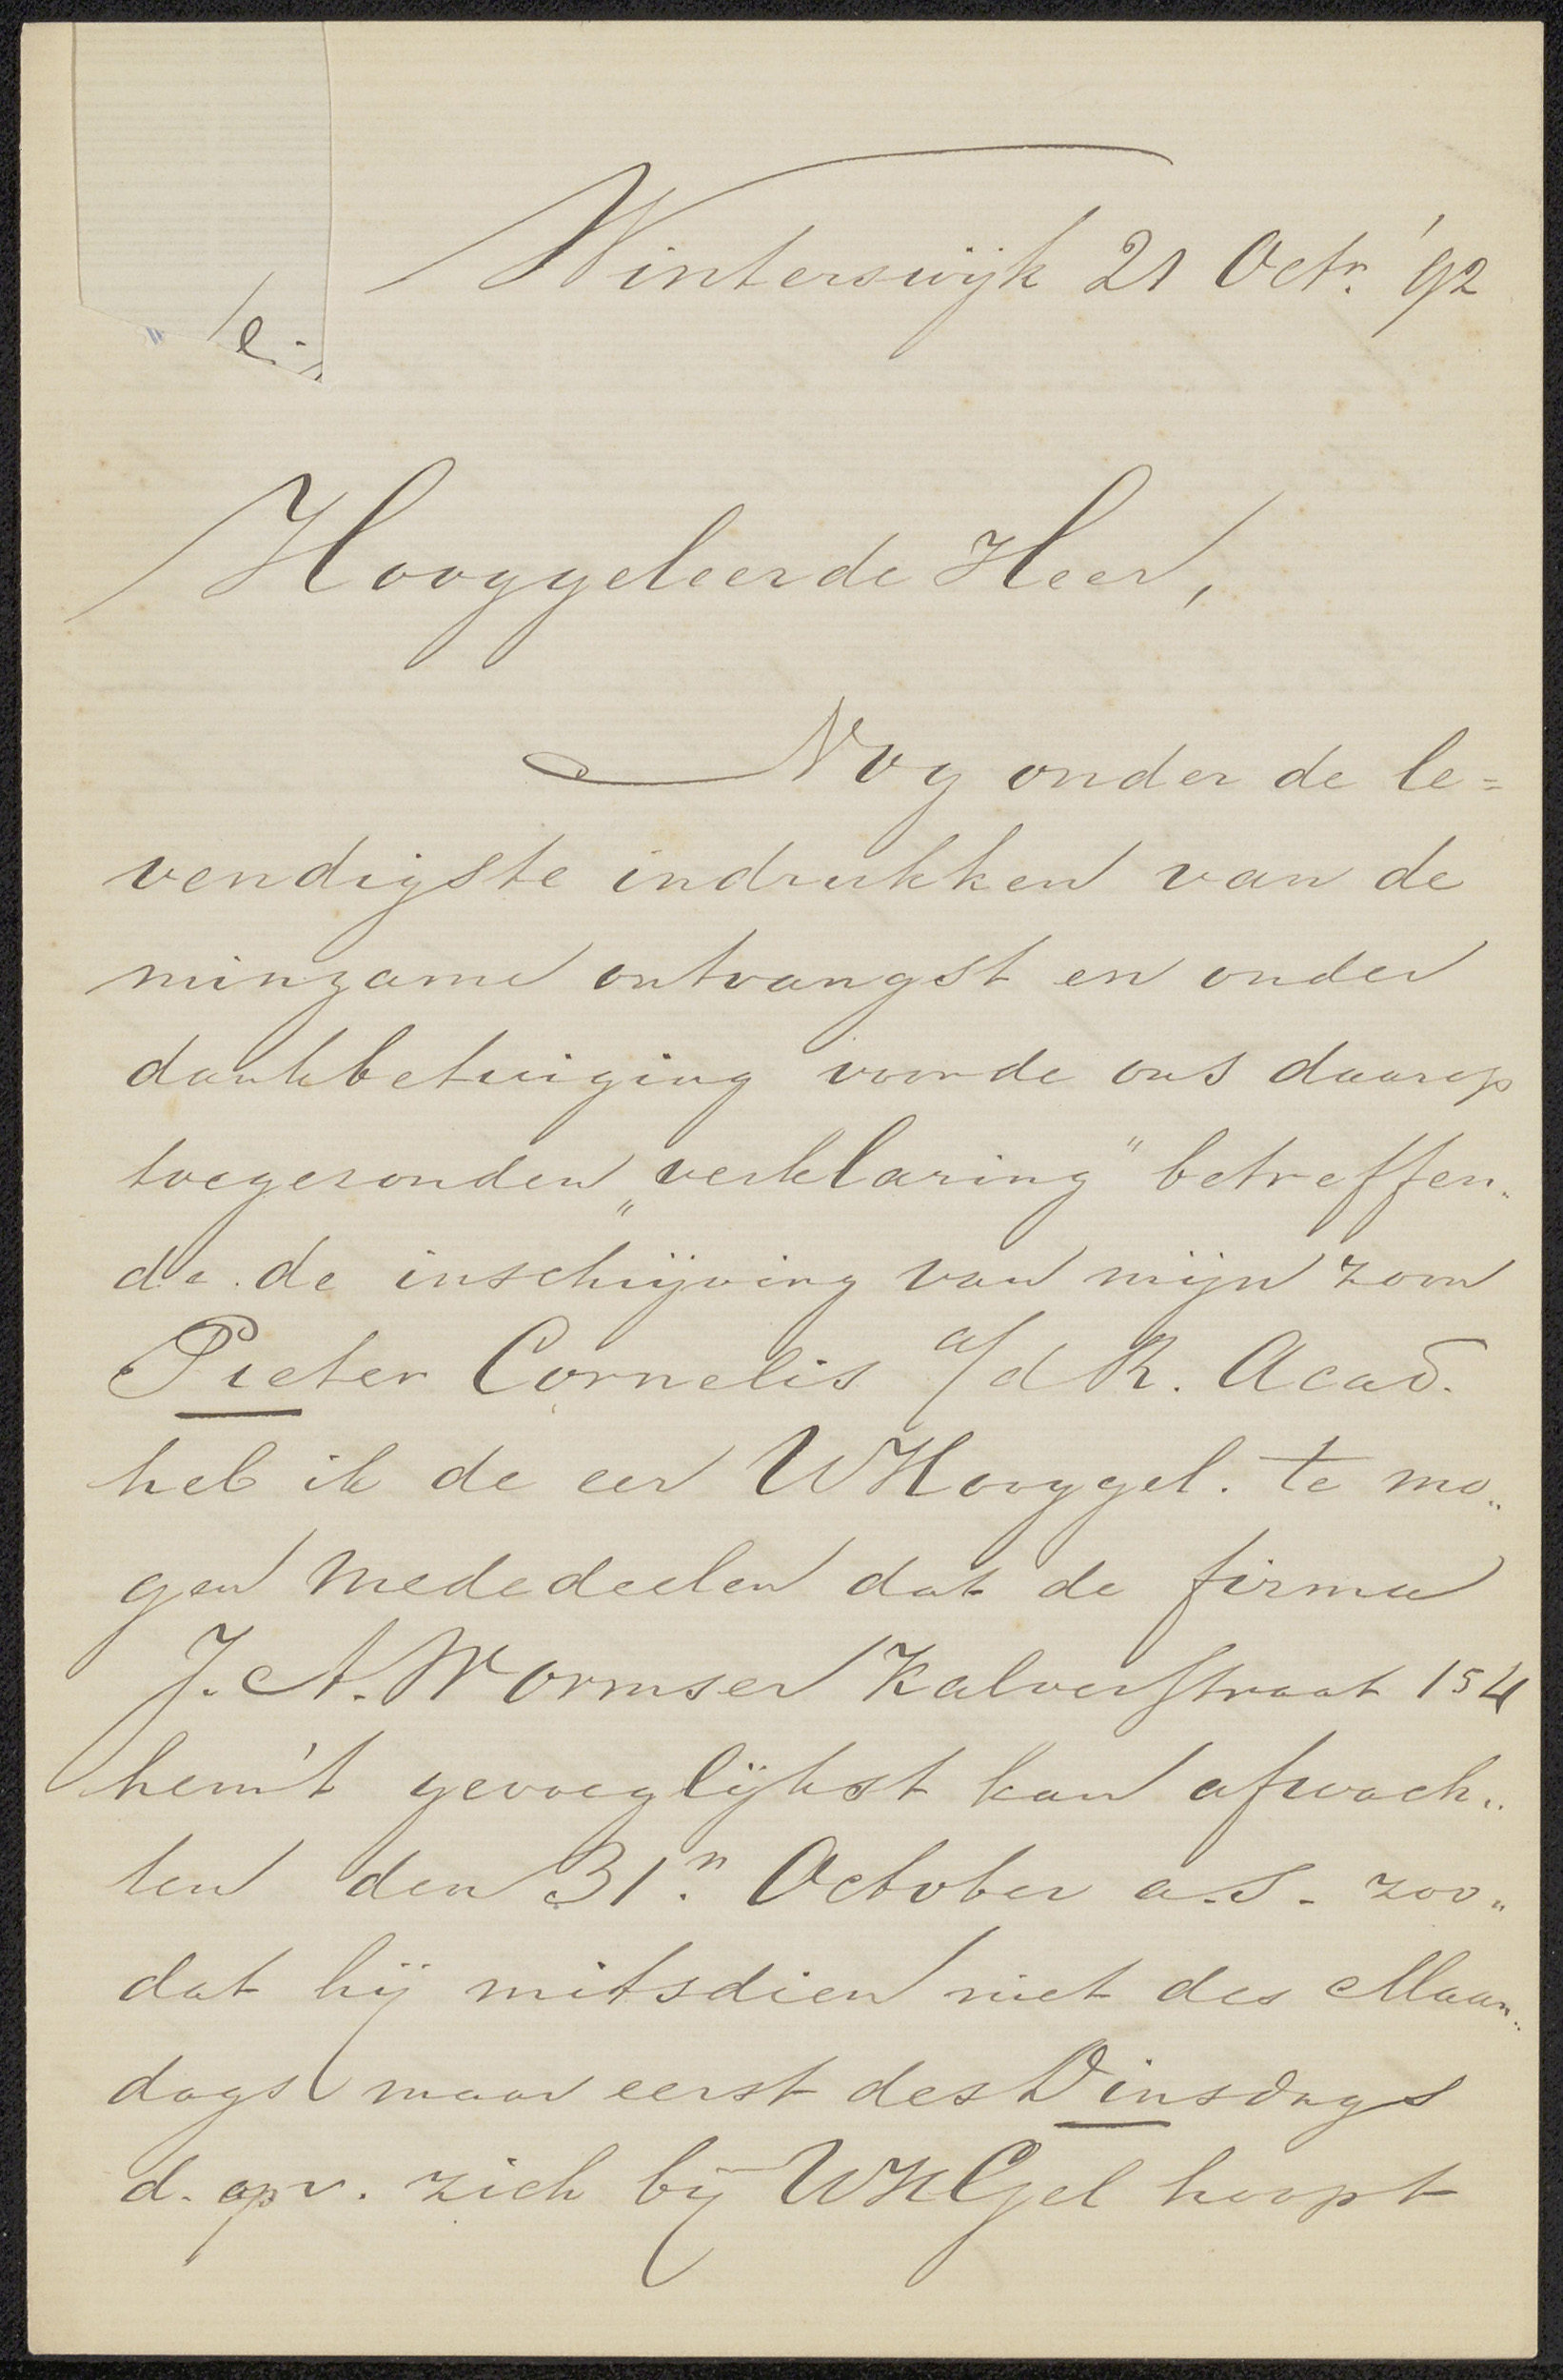 Winterswijk 21 Octr. '92
Hooggeleerde Heer,
Nog onder de le=
vendigste indrukken van de
minzame ontvangst en onder
dankbetuiging voor de ons daarop
toegezonden „verklaring" betreffen„
de de inschrijving van mijn zoon
Pieter Cornelis a/d R. Acad.
heb ik de eer UHooggel. te mo„
gen mededeelen dat de firma
J. A. Wormser Kalverstraat 154
hem 't gevoeglijkst kan afwach„
ten den 31n. October a.s. zoo„
dat hij mitsdien niet des Maan„
dags maar eerst des Dinsdags
d. opv. zich bij UHGel hoopt